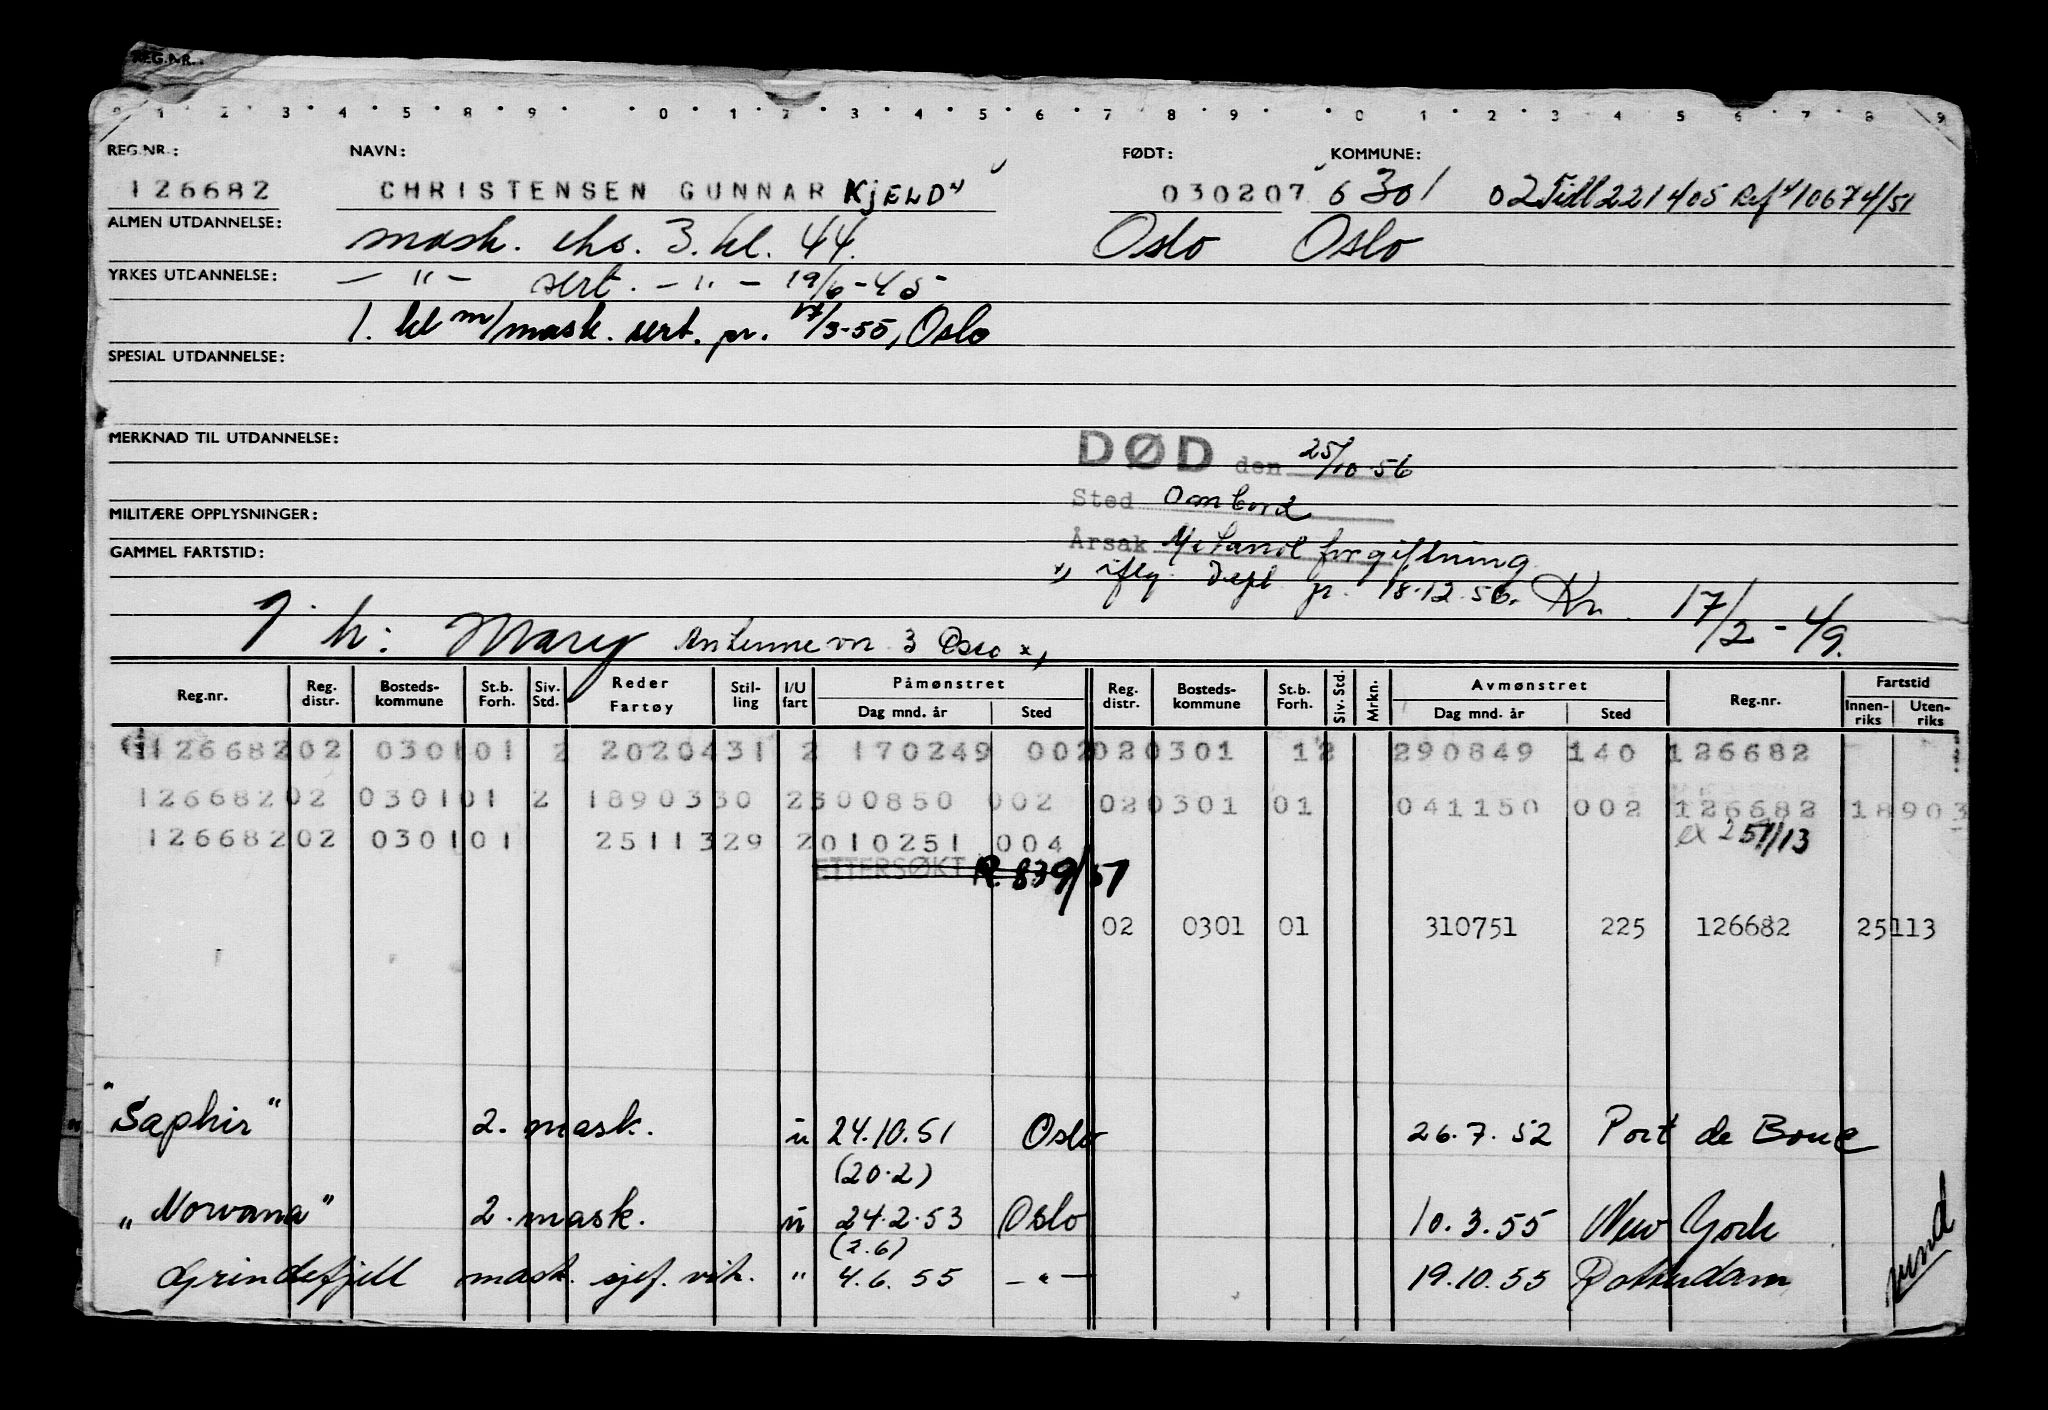 REG.NR.:
0 1 2 3 4 5 8 9 0 1 2 3 4 5 6 7 8 9 0 1 2 3 4 5 6 7 8 9
REG.NR.: NAVN: FØDT: KOMMUNE:
126682 CHRISTENSEN GUNNAR KjELD" 030207 0301 02 Tidl 221405 Ref" 10674/51
ALMEN UTDANNELSE: mask. eks. 3. kl. 44. Oslo Oslo
YRKES UTDANNELSE: — " — sert. — " — 19/6-45
1. kl m/mask. sert. pr. 17/3-55, Oslo
SPESIAL UTDANNELSE:
MERKNAD TIL UTDANNELSE:
DØD den 25/10-56
Sted Ombord
MILITÆRE OPPLYSNINGER:
Årsak Metanol forgiftning
GAMMEL FARTSTID:
x) iflg. Depl. pr. 18.12.56. Kr. 17/2-49.
h: Mary Antennevn. 3 Oslo x)
Reg.nr. Reg. distr. Bosteds-kommune St.b. Forh. Siv. Std. Reder Fartøy Stil-ling I/U fart Påmønstret Dag mnd. år Sted Reg. distr. Bosteds-kommune St.b. Forh. Siv. Std. Mrkn. Avmønstret Dag mnd. år Sted Reg.nr. Fartstid Innen-riks Uten-riks
126682 02 0301 01 2 2020431 2 170249 002 02 0301 12 290849 140 126682
126682 02 0301 01 2 1890330 2 300850 002 02 0301 01 041150 002 126682 18903
126682 02 0301 01 2511329 2 010251 004 ex 251/13
ETTERSØKT R 839/51
02 0301 01 310751 225 126682 25113
"Saphir" 2. mask. u 24.10.51 Oslo 26.7.52 Port de Bouc
(20.2)
"Norvana" 2. mask. u 24.2.53 Oslo 10.3.55 New York
(2.6)
Grindefjell mask. sjef. vik. " 4.6.55 — " — 19.10.55 Rotterdam